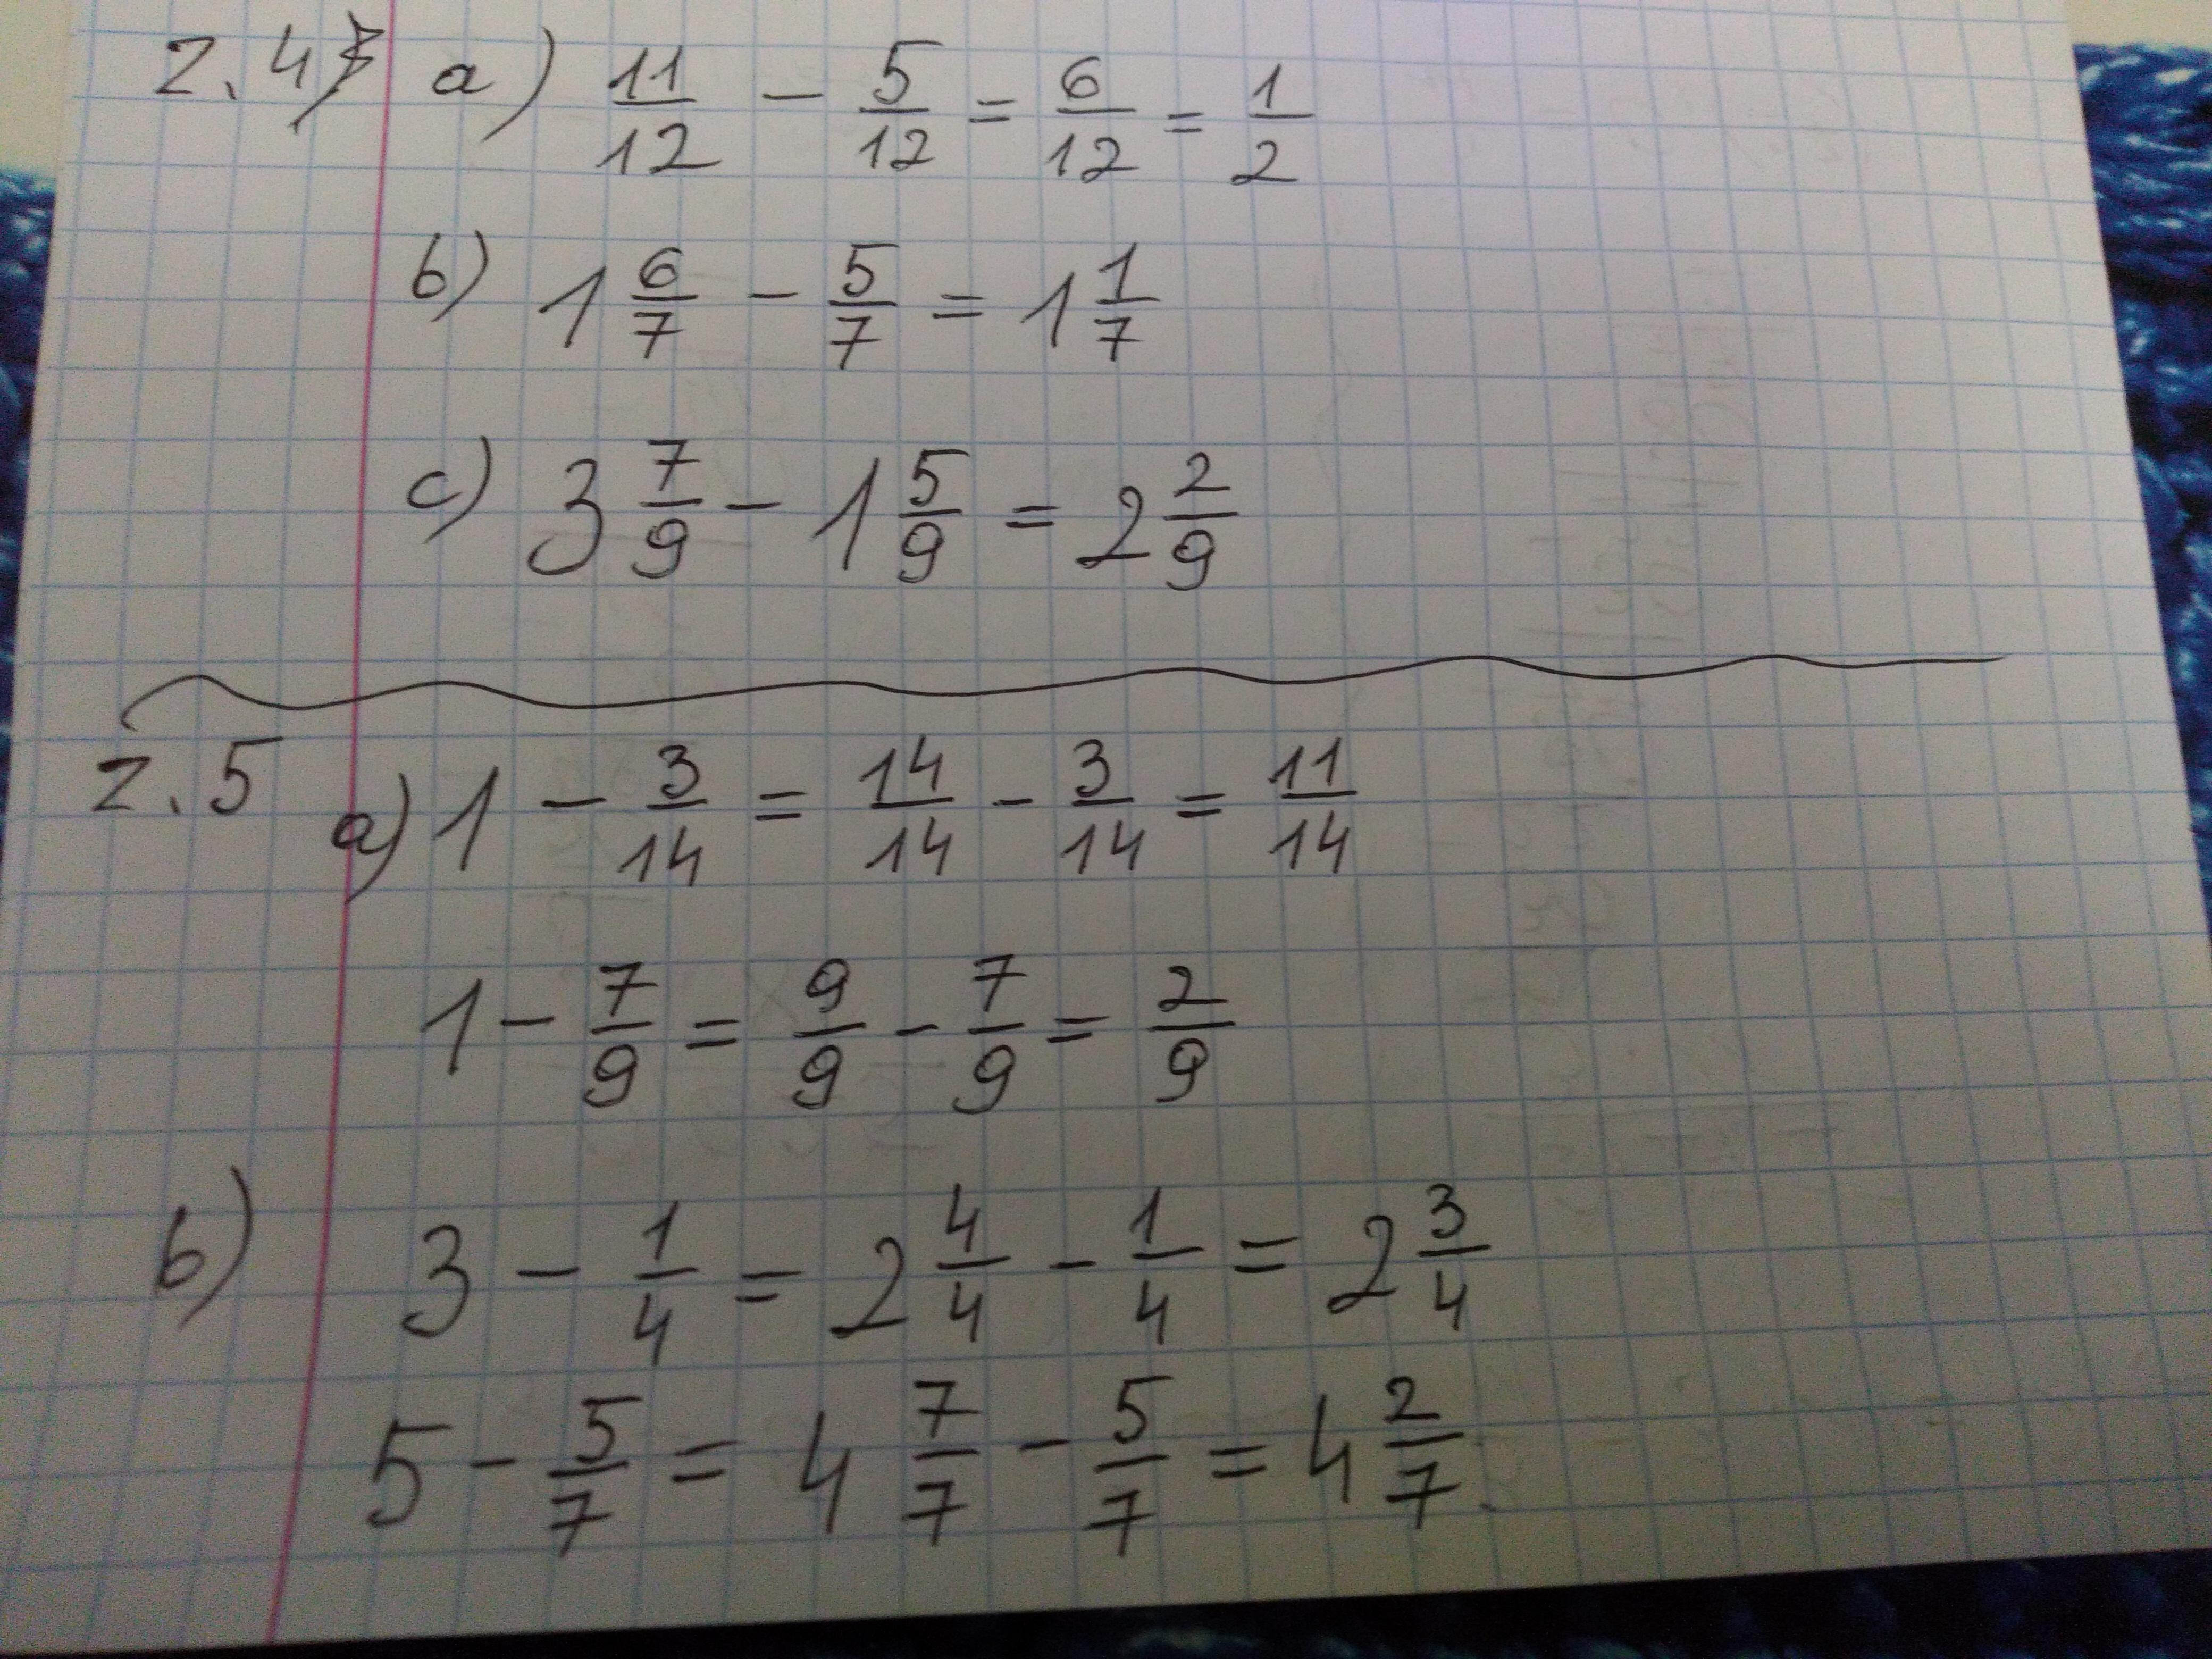 z. 4 a) 11/12 - 5/12 = 6/12 = 1/2
b) 1 6/7 - 5/7 = 1 1/7
c) 3 7/9 - 1 5/9 = 2 2/9
z. 5 a) 1 - 3/14 = 14/14 - 3/14 = 11/14
1 - 7/9 = 9/9 - 7/9 = 2/9
b) 3 - 1/4 = 2 4/4 - 1/4 = 2 3/4
5 - 5/7 = 4 7/7 - 5/7 = 4 2/7